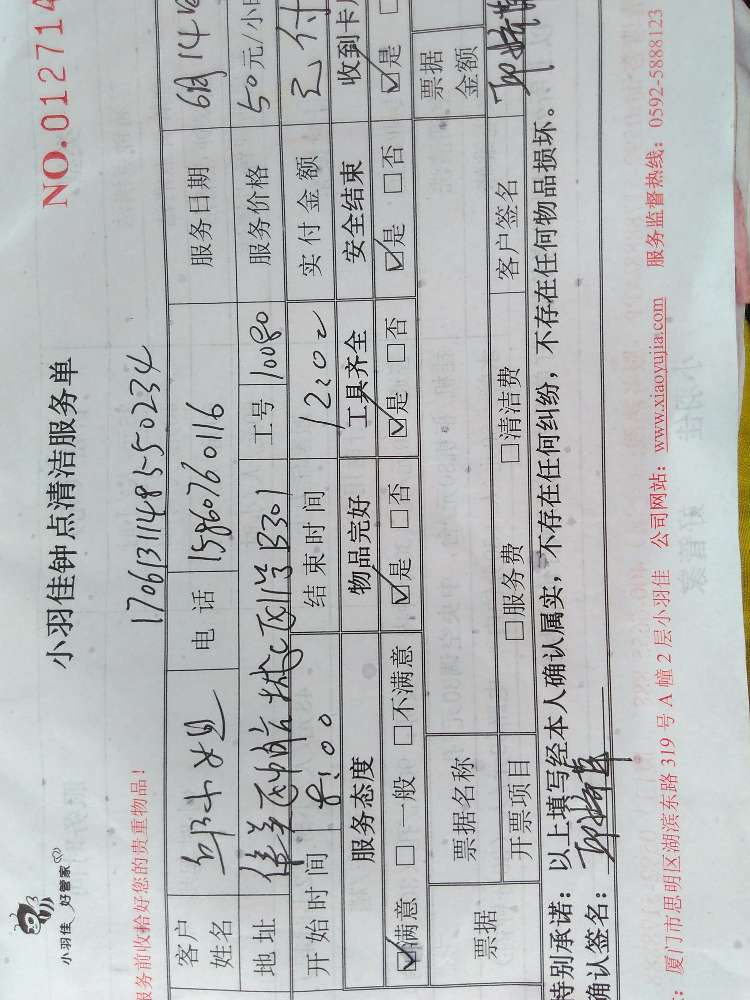 小羽佳 好管家
小羽佳钟点清洁服务单
NO.012714
服务前收拾好您的贵重物品!
17061311485550234
客户姓名 邱小姐 电话 15860760116 服务日期 6月14日
地址 B301 工号 10080 服务价格 50元/小时
开始时间 8:00 结束时间 12:02 实付金额 已付
服务态度 物品完好 工具齐全 安全结束 收到卡
☑满意 □一般 □不满意 ☑是 □否 ☑是 □否 ☑是 □否 ☑是 □
票据 票据名称 票据金额
开票项目 □服务费 □清洁费 客户签名
特别承诺:以上填写经本人确认属实,不存在任何纠纷,不存在任何物品损坏。
确认签名:
:厦门市思明区湖滨东路 319 号 A 幢 2 层小羽佳 公司网站:www.xiaoyujia.com 服务监督热线:0592-5888123